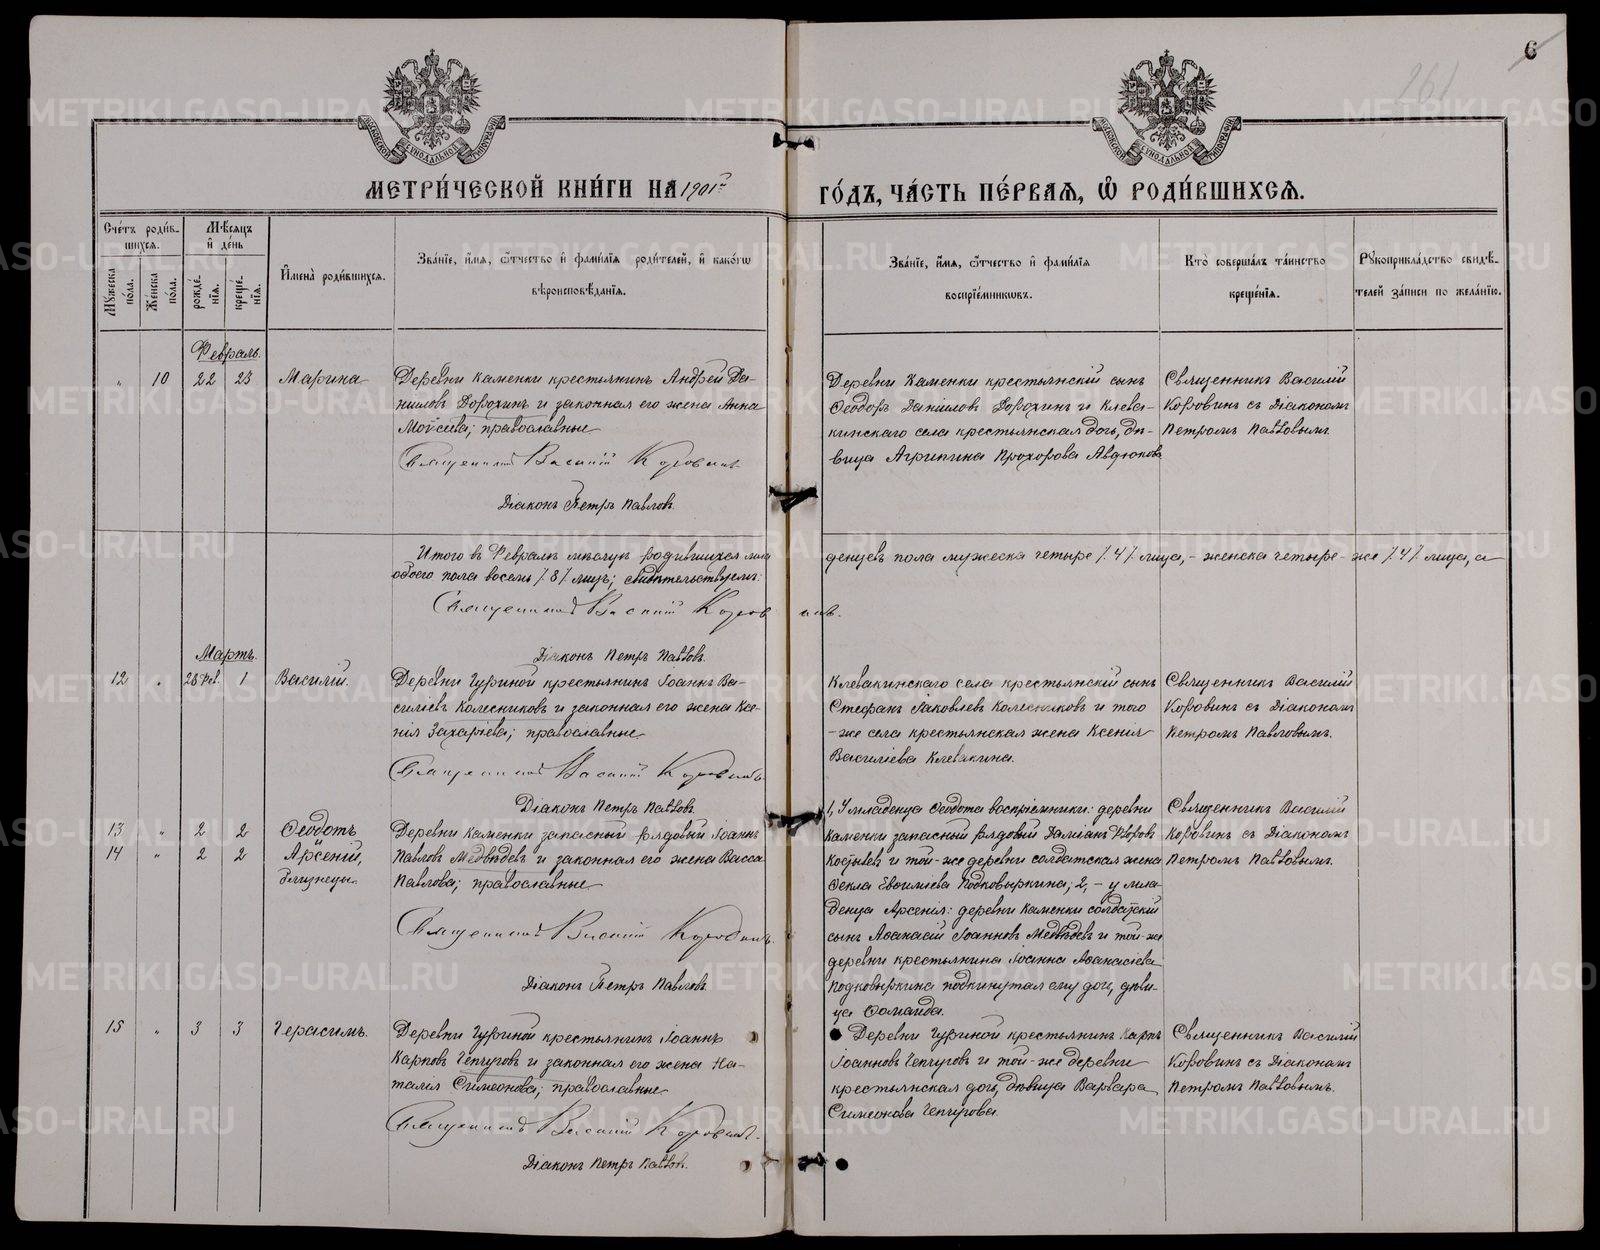 6
261
МЕТРИ́ЧЕСКОЙ КНИ́ГИ НА 1901й
ГО́ДЪ, ЧА́СТЬ ПЕ́РВАЯ, Ѽ РОДИ́ВШИХСѦ.
Сче́тъ роди́в-
шихся.
Мѣсяцъ
и҆ де́нь
Мꙋ́жеска по́ла.
Же́нска по́ла.
рожде́-
нїя.
креще́-
нїя.
И҆мена̀ роди́вшихся.
Зва́нїе, и҆́мя, ѻ҆́тчество и҆ фами́лїя роди́телей, и҆ како́гѡ
вѣроисповѣ́данїя.
Зва́нїе, и҆́мя, ѻ҆́тчество и҆ фами́лїя
воспрїе́мникѡвъ.
Кто̀ соверша́лъ та́инство
креще́нїя.
Рꙋкоприкла́дство свидѣ́-
телей за́писи по жела́нїю.
Февраль.
" 10 22 23 Марина
Деревни Каменки крестьянинъ Андрей Да-
ниловъ Дорохинъ и законная его жена Анна
Моѵсіева; православные
Священникъ Василій Коровинъ
Діаконъ Петръ Павловъ.
Деревни Каменки крестьянскій сынъ
Ѳеодоръ Даніиловъ Дорохинъ и Клева-
кинскаго села крестьянская дочь, дѣ-
вица Агрипина Прохорова Авдюкова
Священникъ Василій
Коровинъ съ Діакономъ
Петромъ Павловымъ.
Итого въ Февралѣ мѣсяцѣ родившихся мла
денцевъ пола мужеска четыре /4/ лица, - женска четыре-же /4/ лица, а
обоего пола восемь /8/ лицъ; свидѣтельствуемъ:
Священникъ Василій Коровинъ.
Діаконъ Петръ Павловъ.
Мартъ.
12 " 28 Фев. 1 Василій.
Деревни Гуриной крестьянинъ Іоаннъ Ва-
силіевъ Колесниковъ и законная его жена Ксе-
нія Захаріева; православные
Священникъ Василій Коровинъ
Діаконъ Петръ Павловъ
Клевакинскаго села крестьянскій сынъ
Стефанъ Іаковлевъ Колесниковъ и того
-же села крестьянская жена Ксенія
Василіева Клевакина.
Священникъ Василій
Коровинъ съ Діакономъ
Петромъ Павловымъ.
13 " 2 2 Ѳеодотъ
14 " 2 2 Арсеній,
близнецы.
Деревни Каменки запасный рядовый Іоаннъ
Павловъ Медвѣдевъ и законная его жена Васса
Павлова; православные
Священникъ Василій Коровинъ.
Діаконъ Петръ Павловъ.
1, У младенца Ѳеодота воспріемники: деревни
Каменки запасный рядовый Даміанъ
и той-же деревни солдатская жена
Ѳекла Подковыркина; 2, - у мла-
денца Арсенія: деревни Каменки солдатскій
сынъ Аѳанасій Іоанновъ Медвѣдевъ и той-же
деревни крестьянина Іоанна Аѳанасіева
Подковыркина подкинутая ему дочь, дѣви-
ца
Священникъ Василій
Коровинъ съ Діакономъ
Петромъ Павловымъ.
15 " 3 3 Герасимъ.
Деревни Гуриной крестьянинъ Іоаннъ
Карповъ Чепчуговъ и законная его жена На-
талія Симеонова; православные
Священникъ Василій Коровинъ.
Діаконъ Петръ Павловъ.
Деревни Гуриной крестьянинъ Карпъ
Іоанновъ Чепчуговъ и той-же деревни
крестьянская дочь, дѣвица Варвара
Симеонова Чепчугова.
Священникъ Василій
Коровинъ съ Діакономъ
Петромъ Павловымъ.
METRIKI.GASO-URAL.RU